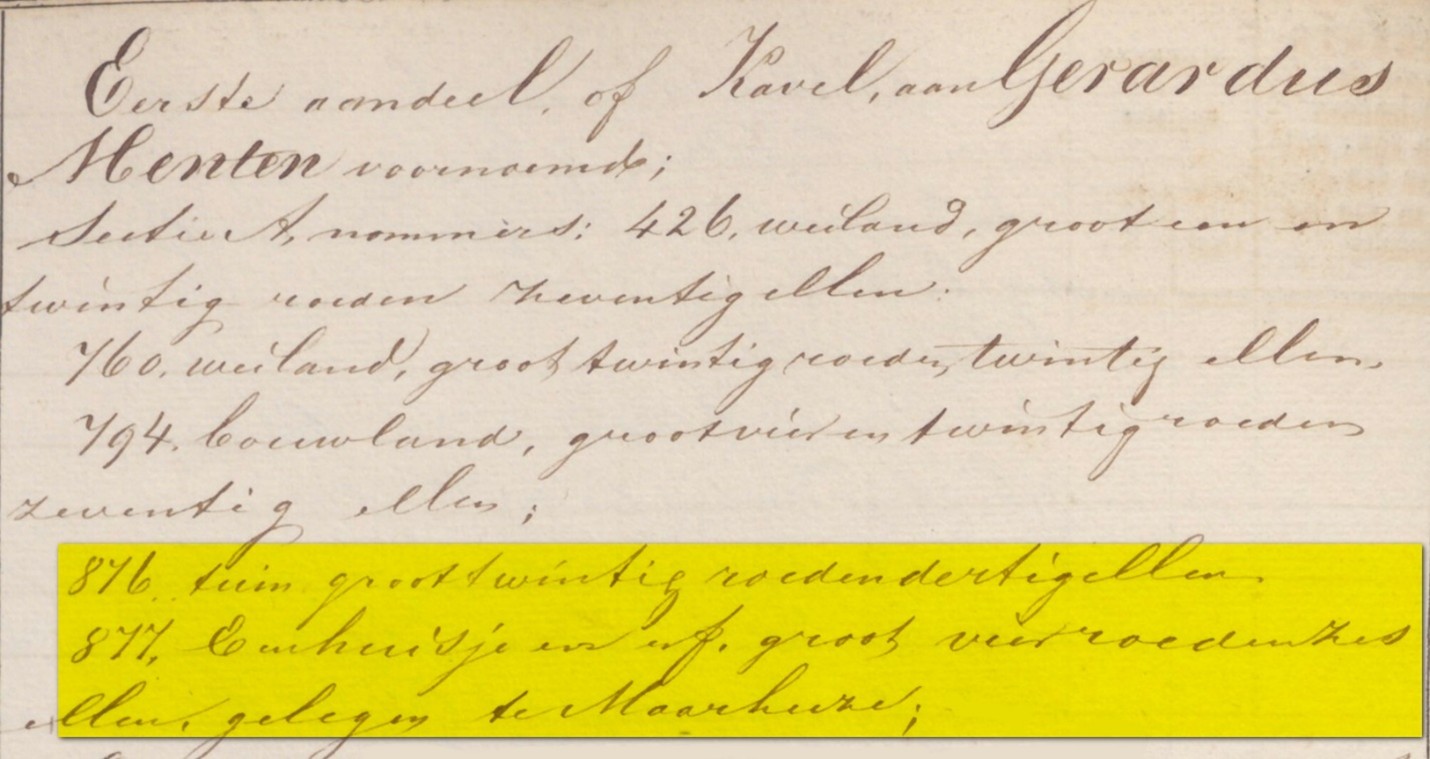 Eerste aandeel, of Kavel, aan Gerardus
Menten voornoemd;
Sectie A, nommers: 426, weiland, groot een en
twintig roeden zeventig ellen.
760, weiland, groot twintig roeden, twintig ellen.
794. bouwland, groot vier en twintig roeden
zeventig ellen;
876. tuin groot twintig roeden dertig ellen.
877, Een huisje en erf, groot vier roeden zes
ellen, gelegen te Maarheeze;